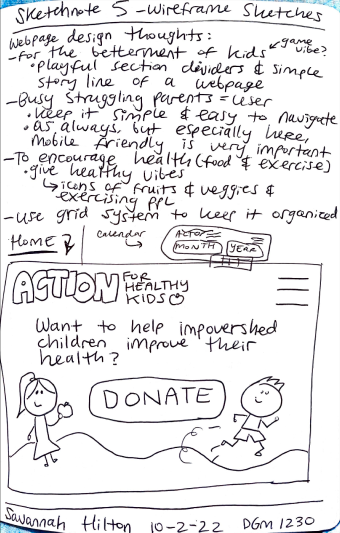 Sketchnote 5 - Wireframe Sketches
Webpage design thoughts:
- For the betterment of kids ↙ game vibe?
• playful section dividers & simple
story line of a webpage
- Busy struggling parents = user
• keep it simple & easy to navigate
• as always, but especially here,
mobile friendly is very important
- To encourage health (food & exercise)
• give healthy vibes
↳ icons of fruits & veggies &
exercising ppl
- use grid system to keep it organized
HOME
calendar →
MONTH YEAR
ACTION FOR
HEALTHY
KIDS
Want to help impovershed
children improve their
health?
DONATE
Savannah Hilton 10-2-22 DGM 1230